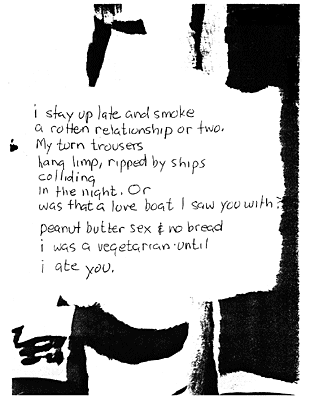 i stay up late and smoke
a rotten relationship or two.
My torn trousers
hang limp, ripped by ships
colliding
in the night. Or
was that a love boat I saw you with?
peanut butter sex & no bread
i was a vegetarian until
i ate you.